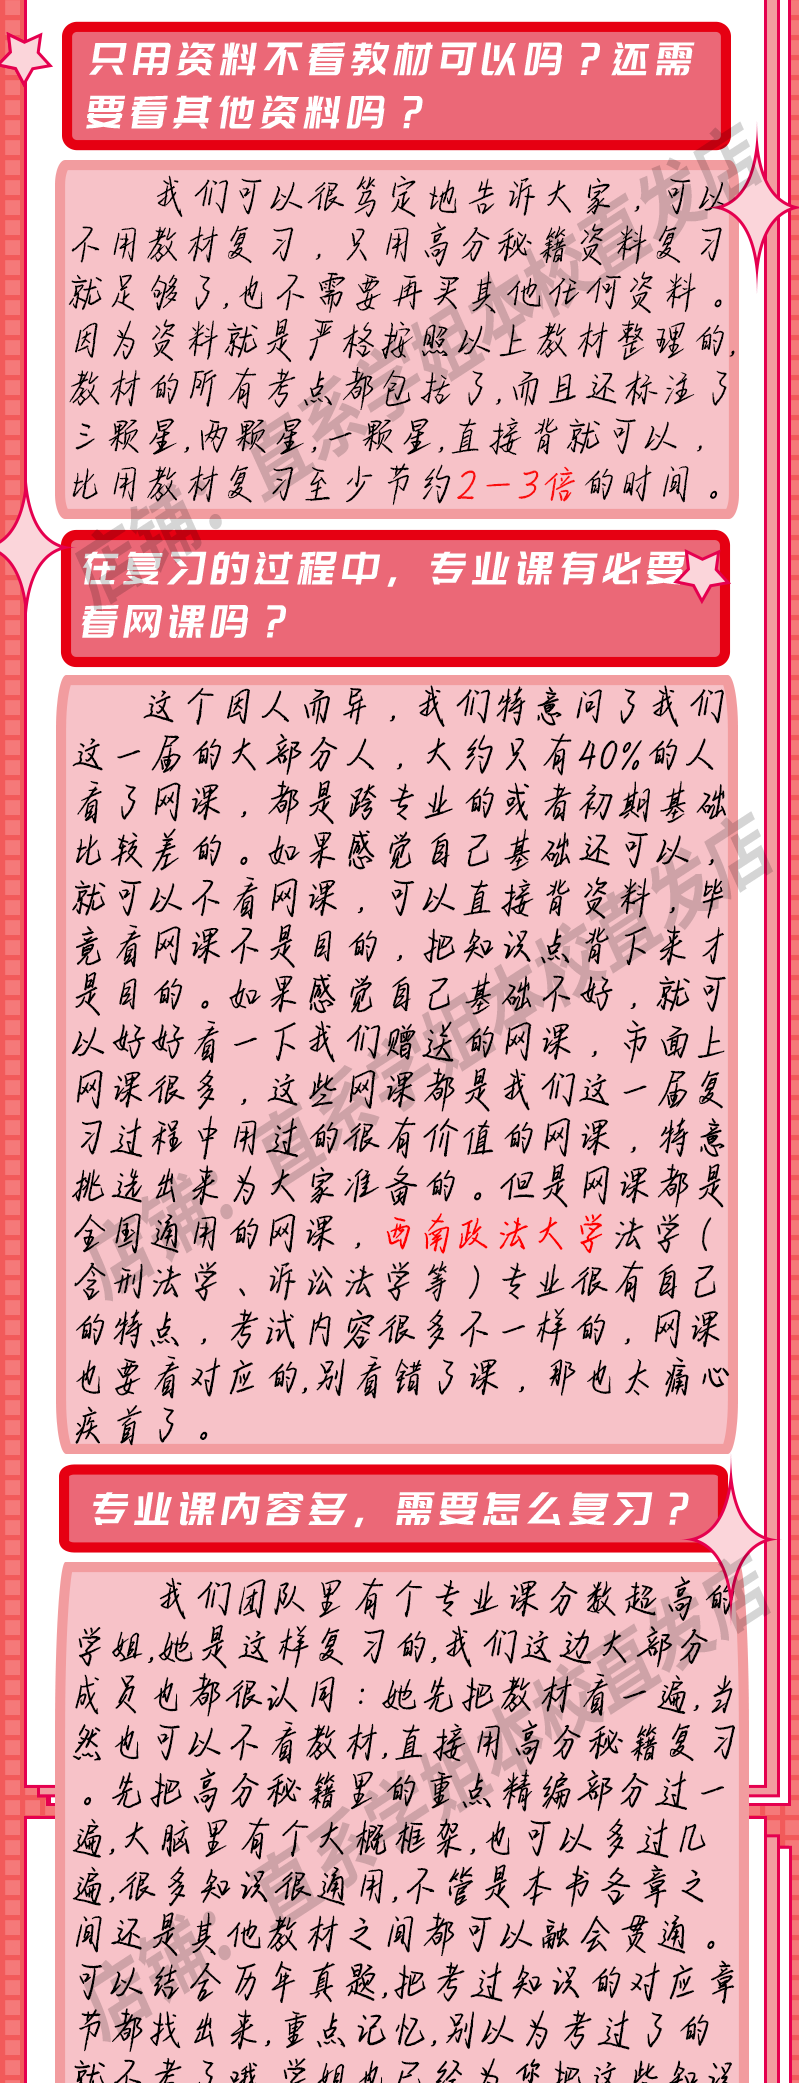 只用资料不看教材可以吗？还需
要看其他资料吗？
我们可以很笃定地告诉大家，可以
不用教材复习，只用高分秘籍资料复习
就足够了,也不需要再买其他任何资料。
因为资料就是严格按照以上教材整理的,
教材的所有考点都包括了,而且还标注了
三颗星,两颗星,一颗星,直接背就可以，
比用教材复习至少节约2-3倍的时间。
在复习的过程中，专业课有必要
看网课吗？
这个因人而异，我们特意问了我们
这一届的大部分人，大约只有40%的人
看了网课，都是跨专业的或者初期基础
比较差的。如果感觉自己基础还可以，
就可以不看网课，可以直接背资料，毕
竟看网课不是目的，把知识点背下来才
是目的。如果感觉自己基础不好，就可
以好好看一下我们赠送的网课，市面上
网课很多，这些网课都是我们这一届复
习过程中用过的很有价值的网课，特意
挑选出来为大家准备的。但是网课都是
全国通用的网课，西南政法大学法学（
含刑法学、诉讼法学等）专业很有自己
的特点，考试内容很多不一样的，网课
也要看对应的,别看错了课，那也太痛心
疾首了。
专业课内容多，需要怎么复习？
我们团队里有个专业课分数超高的
学姐,她是这样复习的,我们这边大部分
成员也都很认同：她先把教材看一遍,当
然也可以不看教材,直接用高分秘籍复习
。先把高分秘籍里的重点精编部分过一
遍,大脑里有个大概框架,也可以多过几
遍,很多知识很通用,不管是本书各章之
间还是其他教材之间都可以融会贯通。
可以结合历年真题,把考过知识的对应章
节都找出来,重点记忆,别以为考过了的
就不考了哦,学姐也已经为您把这些知识
店铺：直系学姐本校直发店
店铺：直系学姐本校直发店
店铺：直系学姐本校直发店